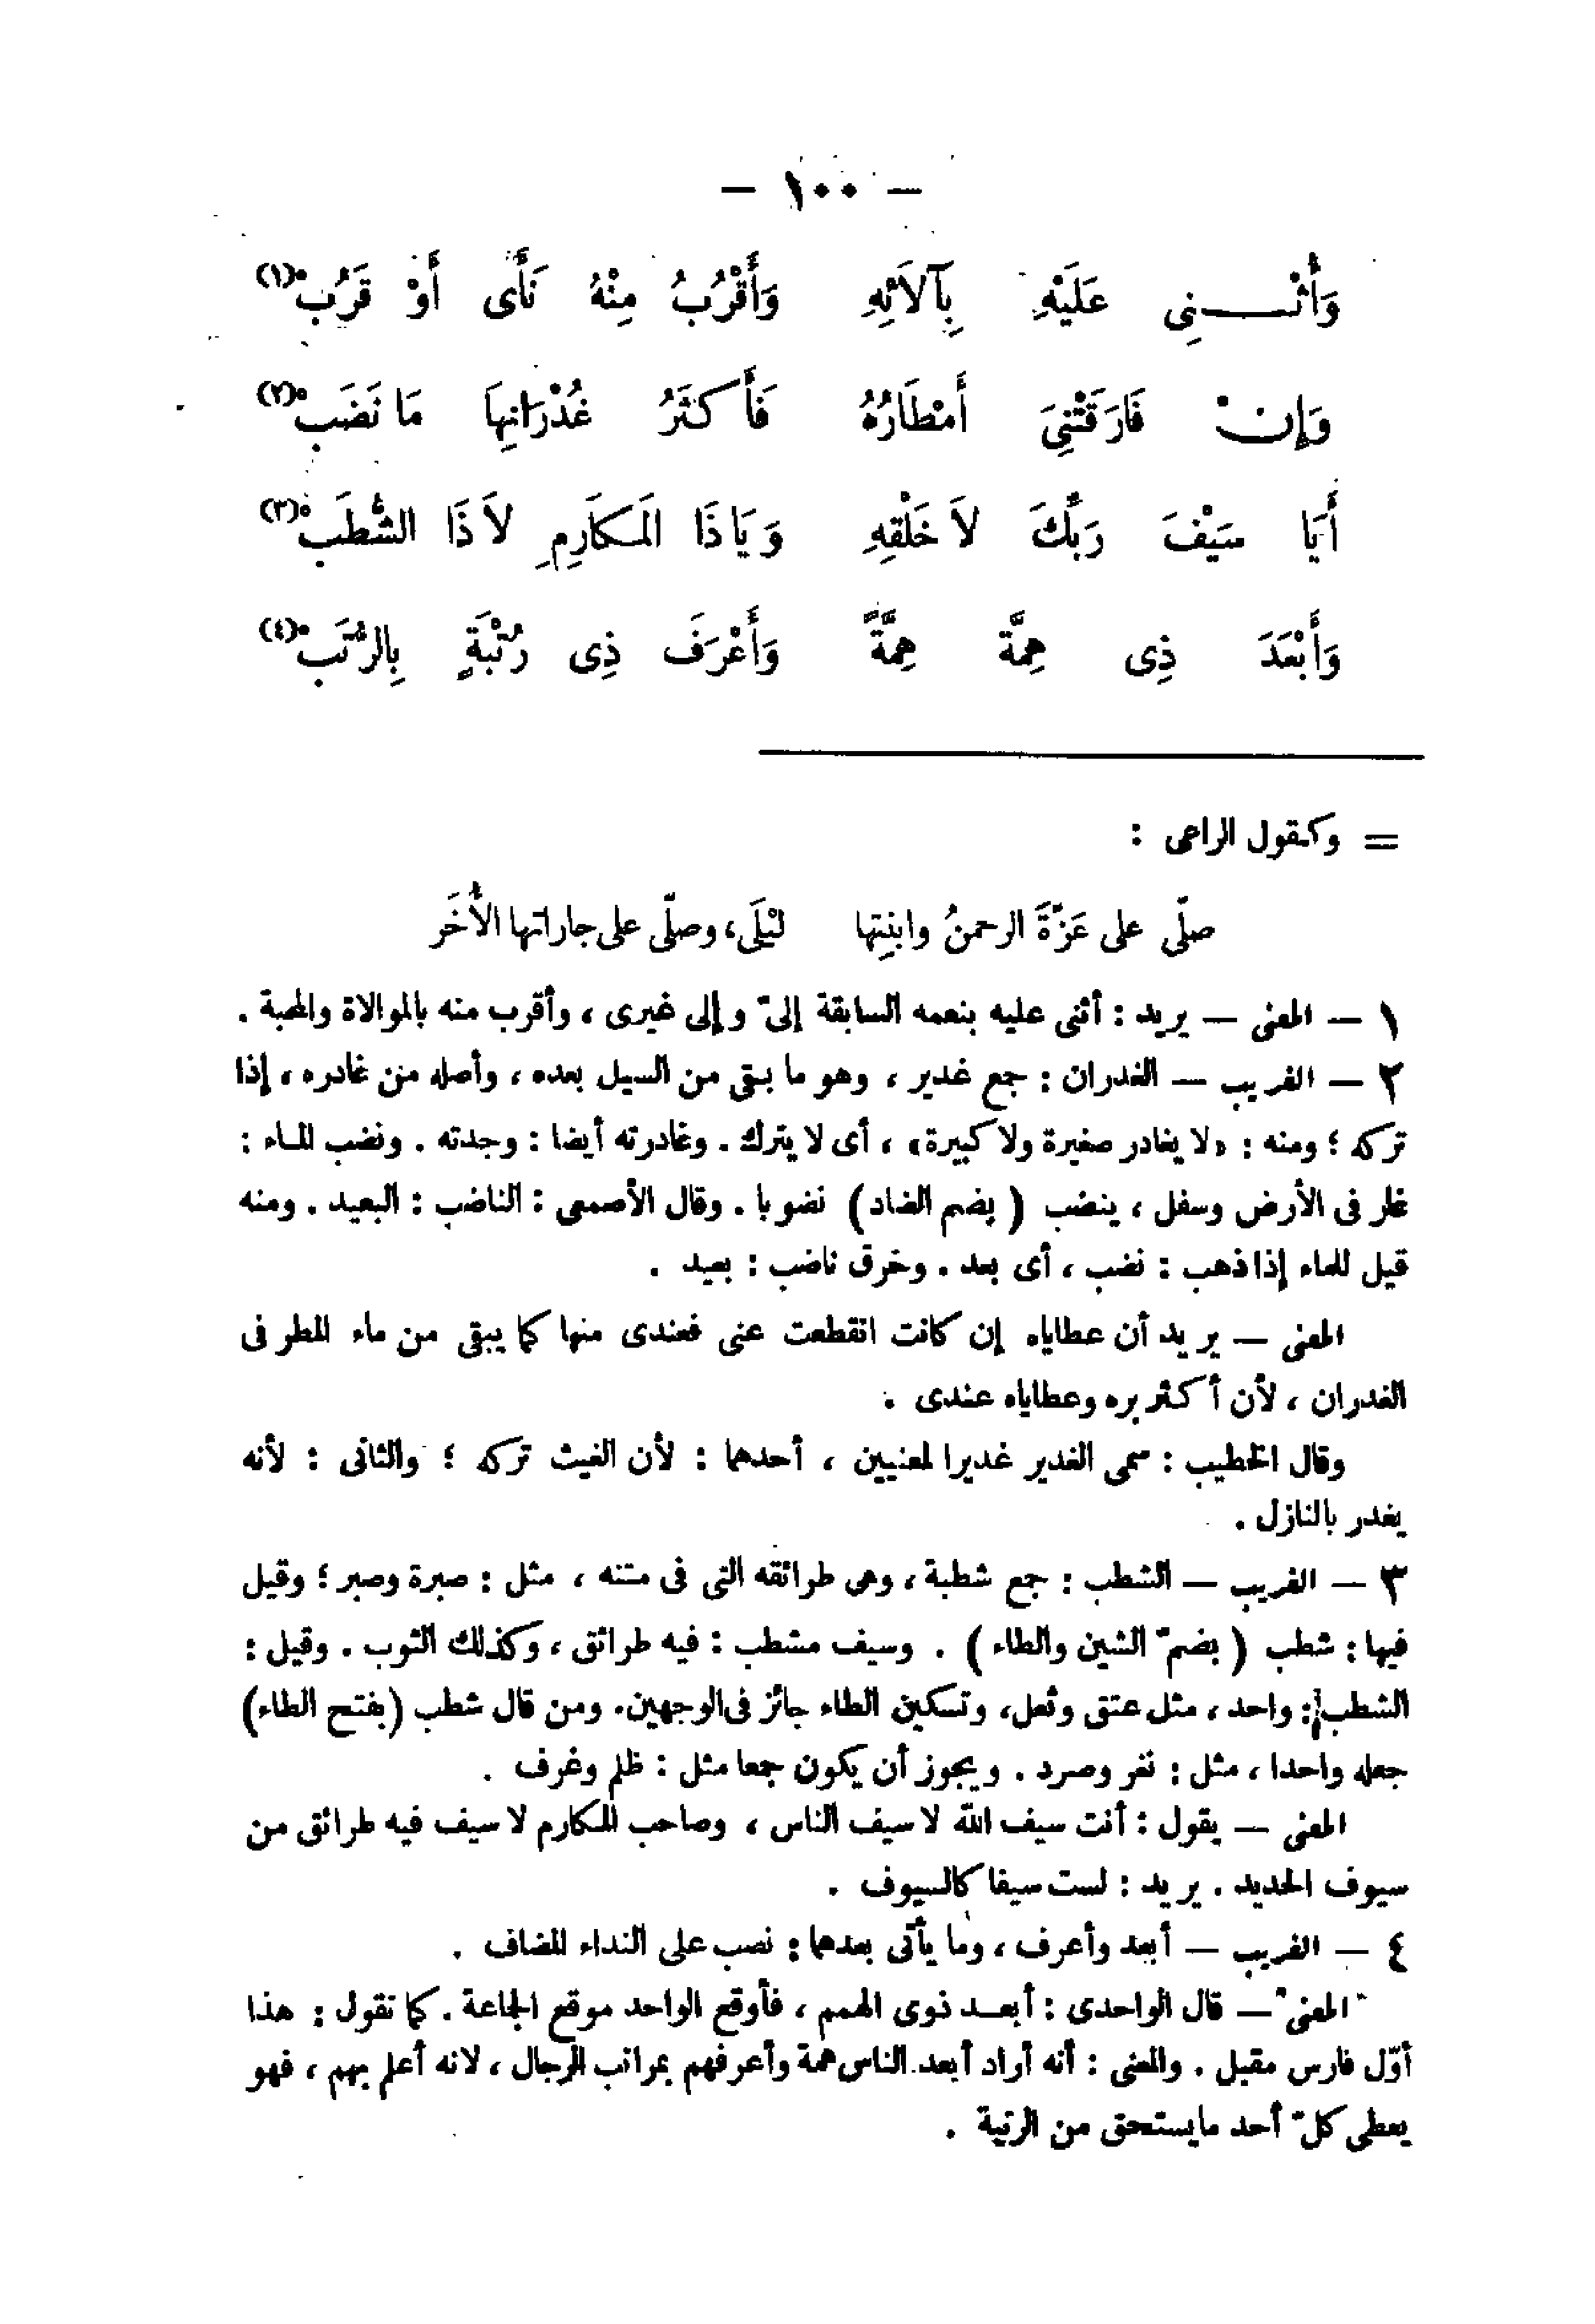 — ١٠٠ —
وَأُثْـــنِى عَلَيْهِ بِآلاَئِهِ وَأَقْرُبُ مِنْهُ نَأَى أَوْ قَرُبْ (١)
وَإِنْ فَارَقَتْنِىَ أَمْطَارُهُ فَأَكْثَرُ غُدْرَانِهِاَ مَا نَضَبْ (٢)
أَيَا سَيْفَ رَبِّكَ لاَ خَلْقِهِ وَيَا ذَا المَكَارِمِ لاَ ذَا الشُّطَبْ (٣)
وَأَبْعَدَ ذِى هِمَّة هِمَّةً وَأَعْرَفَ ذِى رُتْبَةٍ بِالرُّتَبْ (٤)
= وكقول الراعى :
صلّى على عَزَّةَ الرحمنُ وابنِتها لَيْلَى، وصلّى على جاراتها الأُخَر
١ — المعنى — يريد : أثنى عليه بنعمه السابقة إلىّ وإلى غيرى ، وأقرب منه بالموالاة والمحبة .
٢ — الغريب — الغدران : جمع غدير ، وهو ما بقى من السيل بعده ، وأصله من غادره ، إذا
تركه ؛ ومنه : «لا يغادر صغيرة ولا كبيرة» ، أى لا يترك . وغادرته أيضا : وجدته . ونضب المـاء :
غار فى الأرض وسفل ، ينضب ( بضم الضاد ) نضوبا . وقال الأصمعى : الناضب : البعيد . ومنه
قيل للماء إذا ذهب : نضب ، أى بعد . وخرق ناضب : بعيد .
المعنى — يريد أن عطاياه إن كانت انقطعت عنى فعندى منها كما يبقى من ماء المطر فى
الغدران ، لأن أكثر بره وعطاياه عندى .
وقال الخطيب : سمى الغدير غديرا لمعنيين ، أحدهما : لأن الغيث تركه ؛ والثانى : لأنه
يغدر بالنازل .
٣ — الغريب — الشطب : جمع شطبة ، وهى طرائقه التى فى متنه ، مثل : صبرة وصبر ؛ وقيل
فيها : شطب ( بضمّ الشين والطاء ) . وسيف مشطب : فيه طرائق ، وكذلك الثوب . وقيل :
الشطب : واحد ، مثل عتق وثعل، وتسكين الطاء جائز فى الوجهين. ومن قال شطب (بفتح الطاء)
جعله واحدا ، مثل : نغر وصرد . ويجوز أن يكون جمعا مثل : ظلم وغرف .
المعنى — يقول : أنت سيف الله لا سيف الناس ، وصاحب المكارم لا سيف فيه طرائق من
سيوف الحديد . يريد : لست سيفا كالسيوف .
٤ — الغريب — أبعد وأعرف ، وما يأتى بعدهما : نصب على النداء المضاف .
المعنى — قال الواحدى : أبعــد ذوى الهمم ، فأوقع الواحد موقع الجاعة . كما نقول : هذا
أوّل فارس مقبل . والمعنى : أنه أراد أبعد الناس همة وأعرفهم بمراتب الرجال ، لانه أعلم بهم ، فهو
يعطى كلّ أحد مايستحق من الرتبة .